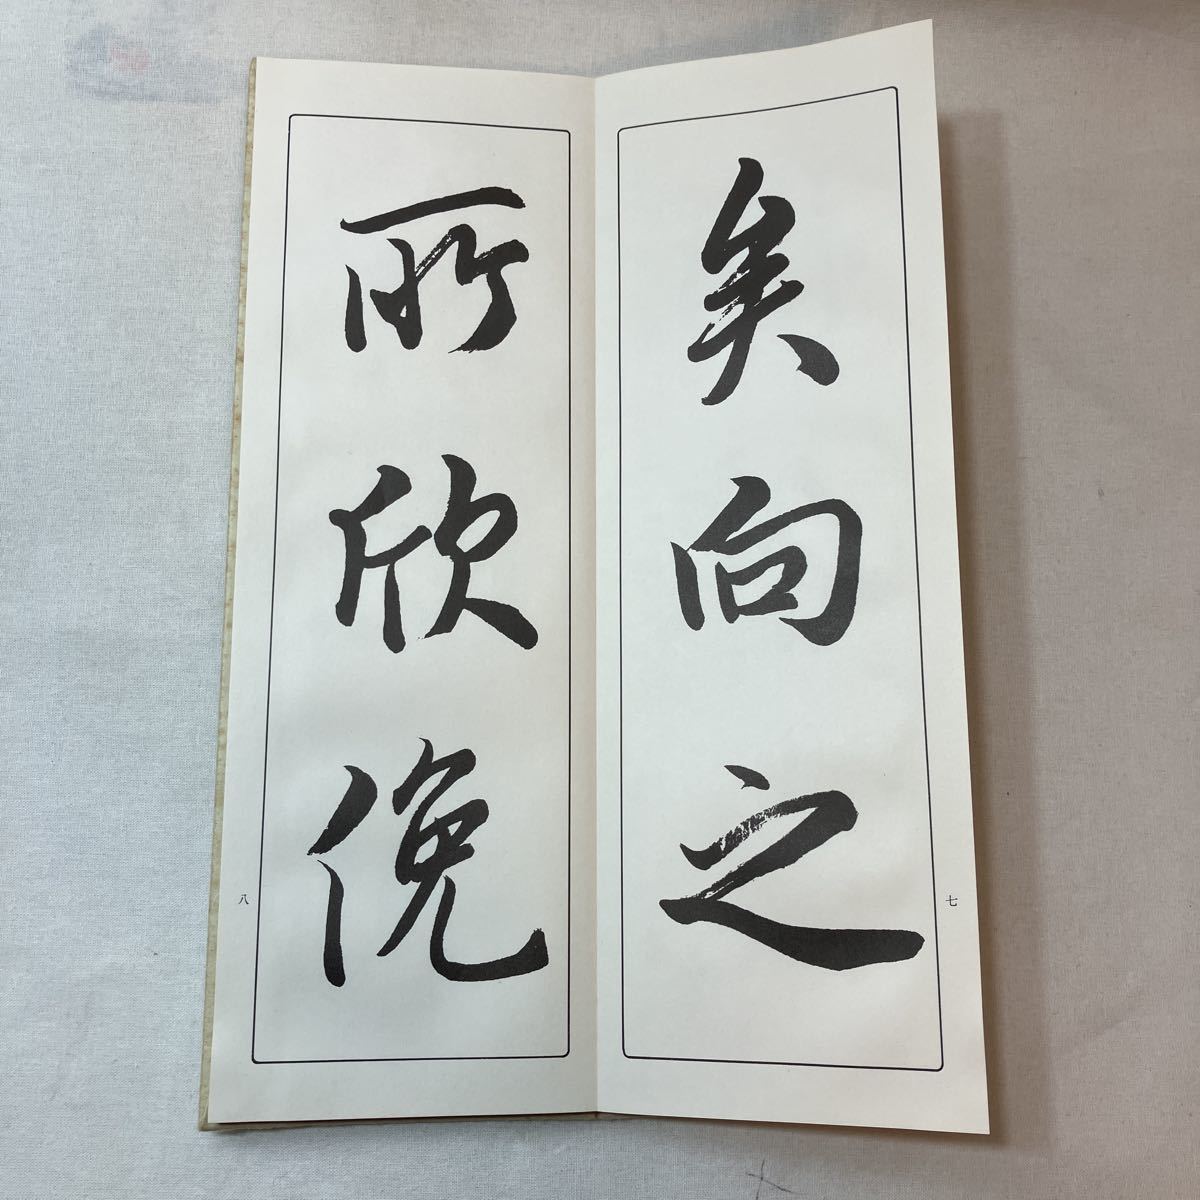 矣向之
七
所欣俛
八